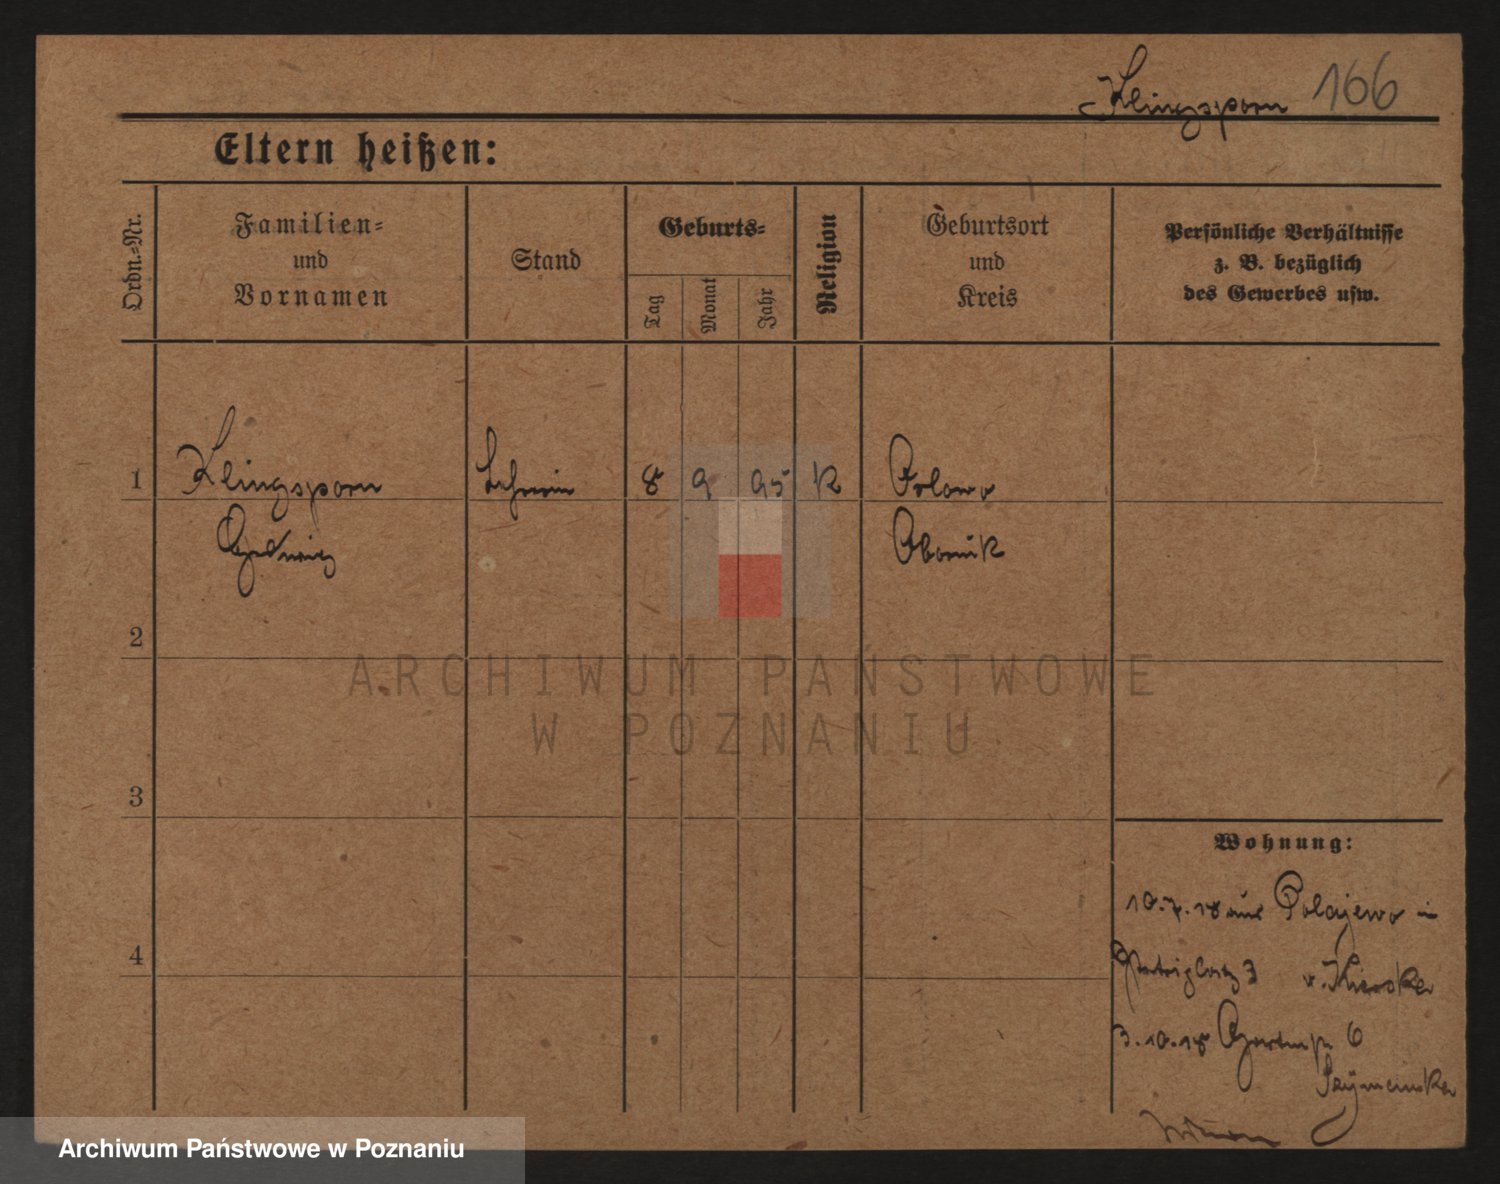 Klingsporn 166
Eltern heißen:
Ordn.-Nr.
Familien-
und
Vornamen
Stand
Geburts-
Tag
Monat
Jahr
Religion
Geburtsort
und
Kreis
Persönliche Verhältnisse
z. B. bezüglich
des Gewerbes usw.
1
Klingsporn
8 9 95 K
Orlowo
Hedwig
Obornik
2
3
4
Wohnung:
10.7.18 aus Polajewo in
3 v. Kierska
3.10.18 Gartenstr 6
Szymanska
ARCHIWUM PAŃSTWOWE
W POZNANIU
Archiwum Państwowe w Poznaniu